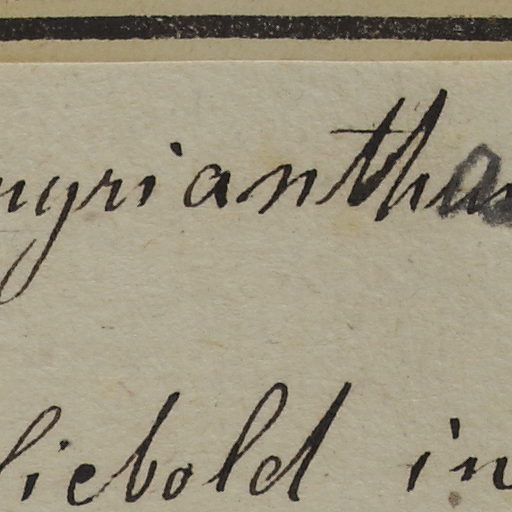 myriantha
Siebold in